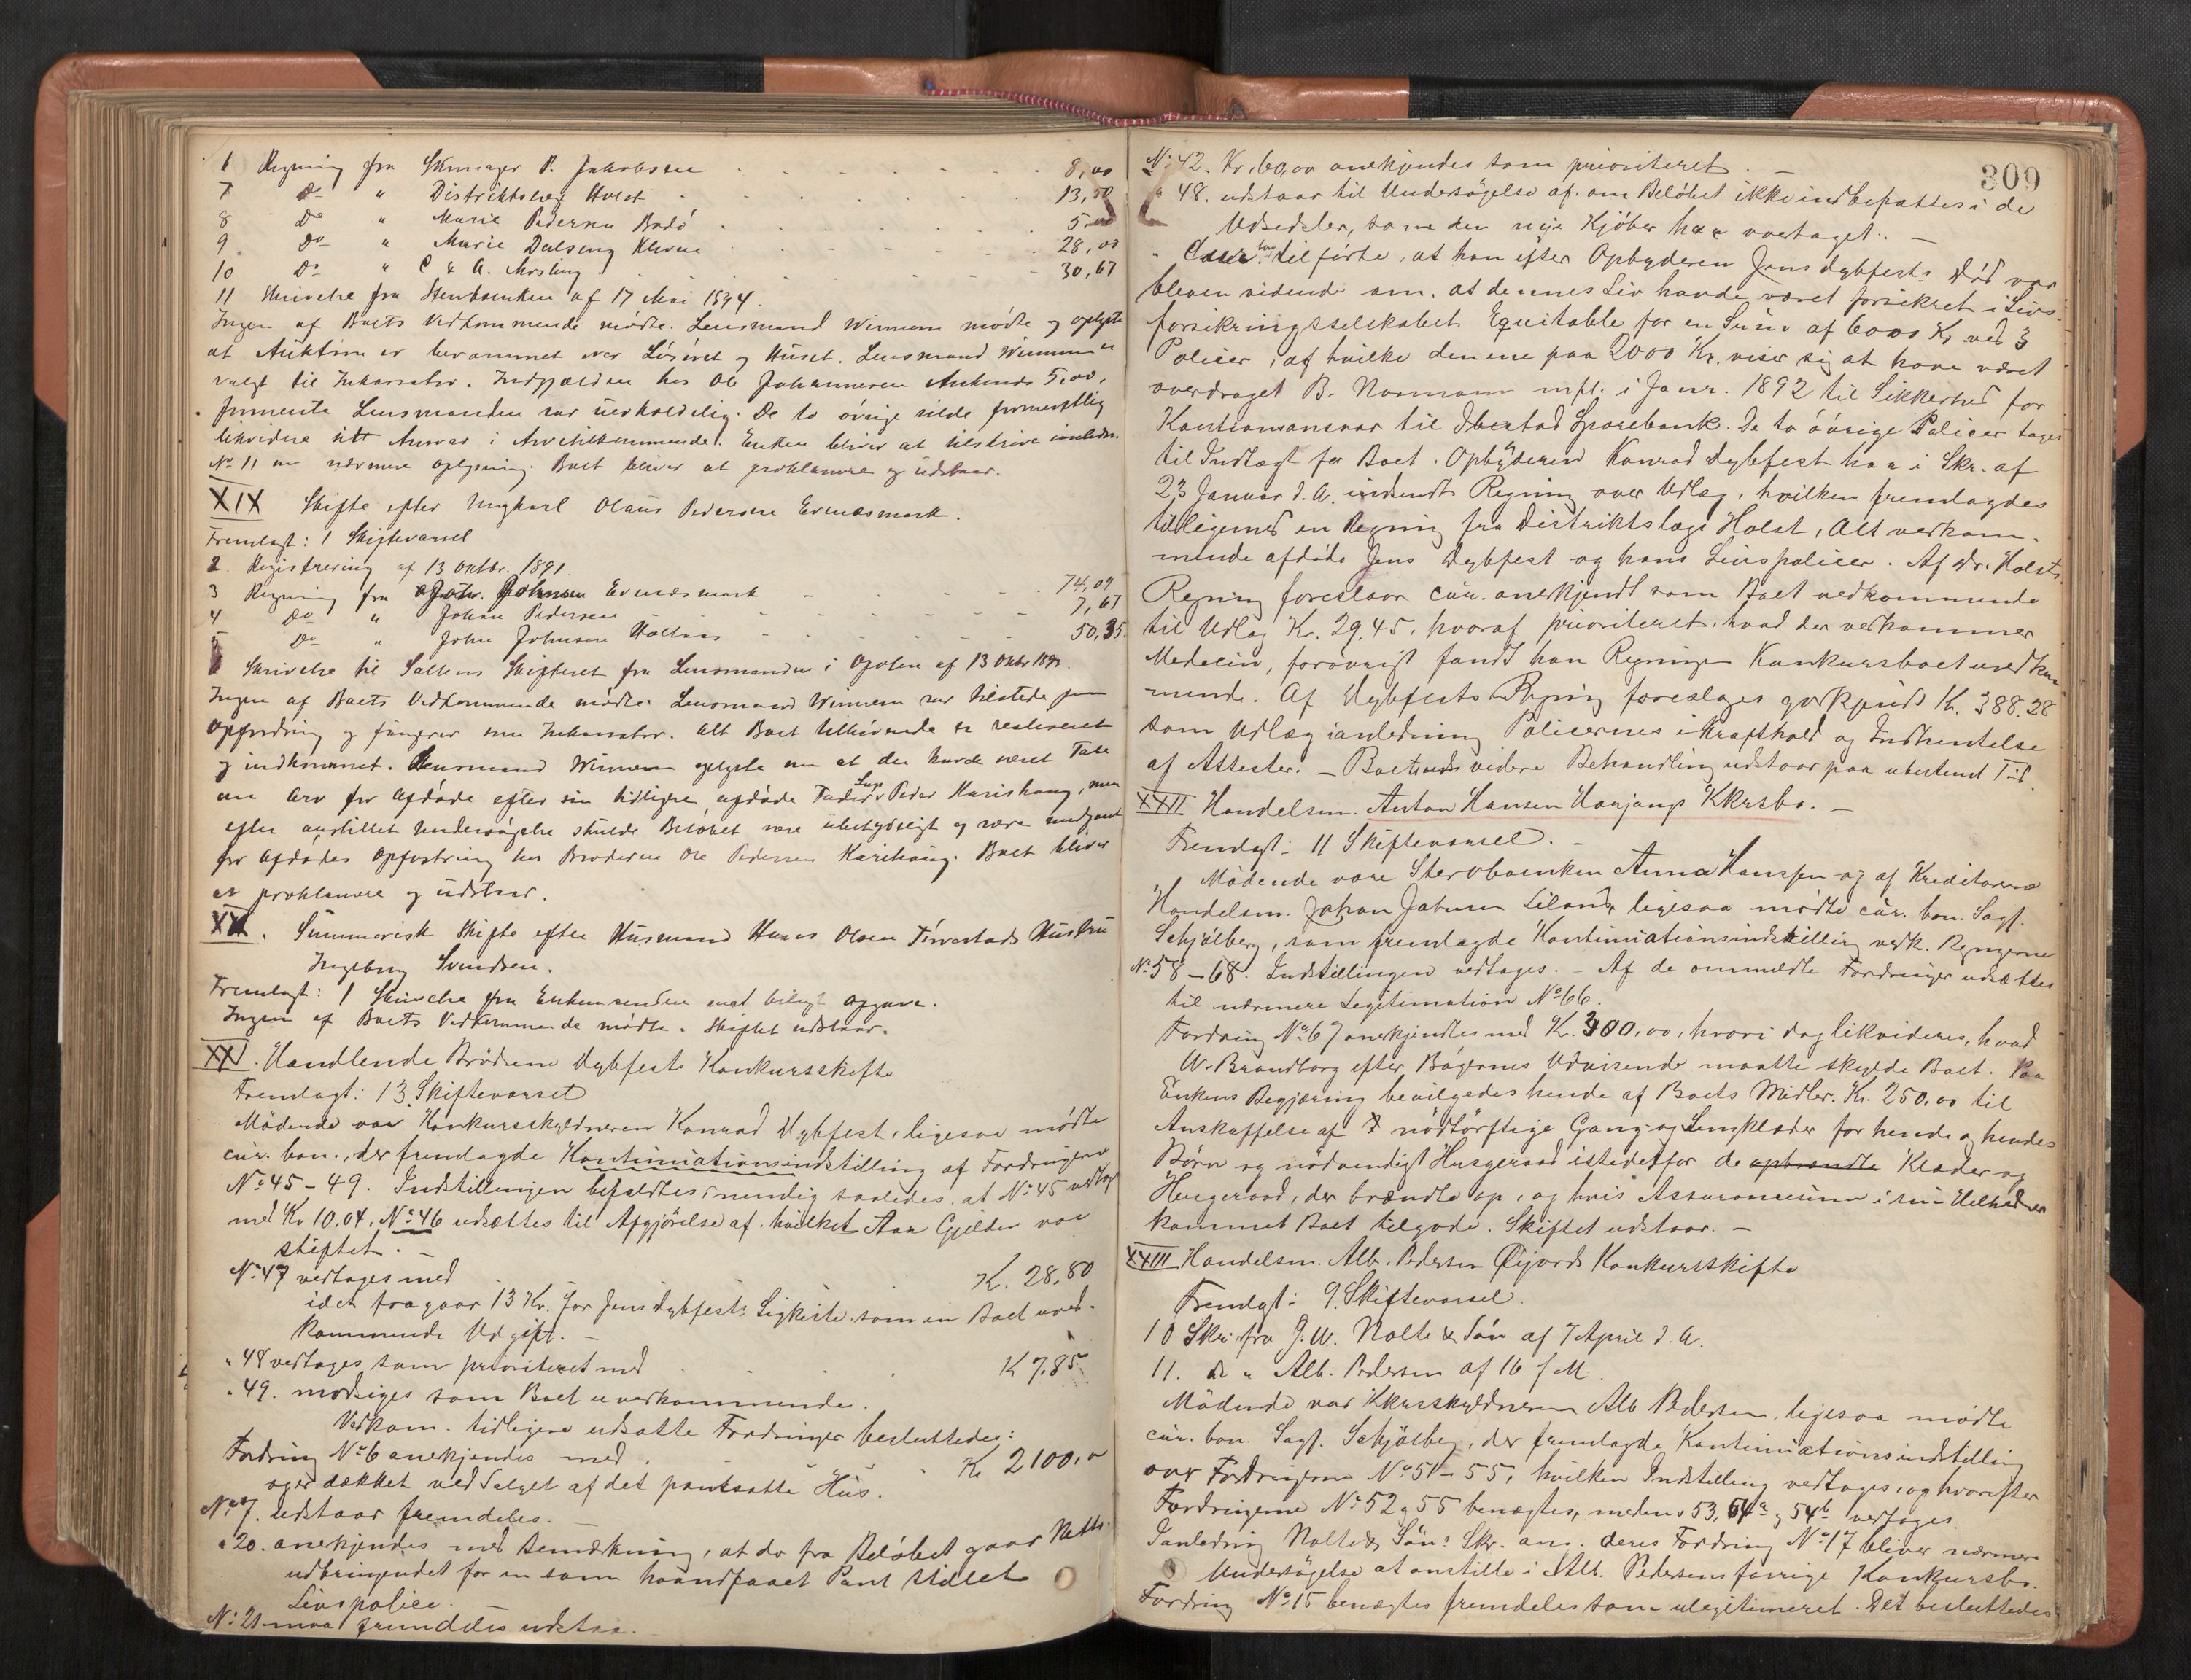 6 Regning fra Skomager P. Jakobsen 8,00
7 Do " Distriktslæge Holst 13,50
8 Do " Marie Pedersen Bodö 5,00
9 Do " Marie Dalseng 28,00
10 Do " C & A. 30,67
11 Skrivelse fra Stervboenken af 17 Mai 1894.
Ingen af Boets Vedkommende mødte. Lensmand Winnem mødte og oplyste
at Auktion er berammet over Løsøret og Huset. Lensmand Winnem er
valgt til Inkassator. Indgjælden hos Ole Johannesen 5,00,
formente Lensmanden var uerholdelig. De to øvrige vilde formentlig
likvidere sit Ansvar i Arvetilkommende. Enken bliver at tilskrive ianledn.
No 11 om nærmere Oplysning. Boet bliver at proklamere og udstaar.
XIX Skifte efter Ungkarl Olaus Pedersen Evenæsmark.
Fremlagt: 1 Skiftevarsel
2. Registrering af 13 Oktbr. 1891.
3 Regning fra Johnsen Evenæsmark 74,09
4 Do " Johan Pedersen 7,67
5 Do " John Johnsen 50,35.
6 Skrivelse til Saltens Skifteret fra Lensmanden i Ofoten af 13 Oktbr 1893.
Ingen af Boets Vedkommende mødte. Lensmand Winnem var tilstede paa
Opfordring og fungerer som Inkassator. Alt Boet tilhørende er realiseret
og indkommet. Lensmand Winnem oplyste om at der havde været Tale
om Arv for Afdøde efter sin tidligere afdøde Fader Peder Karishaug, men
efter anstillet Undersøgelse skulde Beløbet være ubetydeligt og være medgaaet
for Afdødes Opfostring hos Broderen Ole Pedersen Karishaug. Boet bliver
at proklamere og udstaar.
XX. Summarisk Skifte efter Husmand Hans Olsen Hustru
Ingeborg Svendsen.
Fremlagt: 1 Skrivelse fra Enkemanden med bilagt Opgave.
Ingen af Boets Vedkommende mødte. Skiftet udstaar.
XXI. Handlende Brødrene Dybfests Konkursskifte
Fremlagt: 13 Skiftevarsel
Mødende var Konkursskyldneren Konrad Dybfest, ligesaa mødte
cur. bon., der fremlagde Kontinuationsindstilling af Fordringerne
No 45-49. Indstillingen befuldtes nemlig saaledes, at No 45 vedtoges
med Kr 10,04, No 46 udsættes til Afgjørelse af hvilket Aar Gjelden var
stiftet. -
No 47 vedtages med K. 28,80
idet fragaar 13 Kr. for Jens Dybfests Ligkiste som en Boet uved-
kommende Udgift. -
" 48 vedtages som prioriteret med K 7,85
" 49. modsiges som Boet uvedkommende.
Vedkom. tidligere udsatte Fordringer besluttedes:
Fordring No 6 anerkjendes med Kr 2100,00
og er dækket ved Salget af det pantsatte Hus.
No 7. udstaar fremdeles. -
" 20. anerkjendes med Bemærkning, at der fra Beløbet gaar Netto-
udbringendet for en som haandfaaet Pant stillet
Livspolice.
No 21 maa fremdeles udstaa.
309
No 42. Kr. 60,00 anerkjendes som prioriteret. -
" 48. udstaar til Undersøgelse af om Beløbet ikke indbefattes i de
Udsedsler, som den nye Kjøber har overtaget. -
Curator tilførte, at han efter Opbyderen Jens Dybfests Død var
bleven vidende om, at dennes Liv havde været forsikret i Livs-
forsikringsselskabet Equitable for en Sum af 6000 Kr ved 3
Policer, af hvilke den ene paa 2000 Kr. viser sig at have været
overdraget B. Normann mfl. i Janr. 1892 til Sikkerhed for
Kautionsansvar til Ibestad Sparebank. De to øvrige Policer tages
til Indtægt for Boet. Opbyderen Konrad Dybfest har i Skr. af
23 Januar d. A. indsendt Regning over Udlæg, hvilken fremlagdes
tilligemed en Regning fra Distriktslæge Holst, Alt vedkom-
mende afdøde Jens Dybfest og hans Livspolicer. Af Dr. Holsts
Regning foreslaar cur. anerkjendt som Boet vedkommende
til Udlæg Kr. 29.45, hvoraf prioriteret, hvad der vedkommer
Medecin, forøvrigt fandt han Regningen Konkursboet uvedkom-
mende. Af Dybfests Regning foreslages godkjendt Kr. 388.28
som Udlæg i anledning Policernes ikrafthold og Indhentelse
af Attester. - Boets videre Behandling udstaar paa ubestemt Tid.
XXII Handelsm. Anton Hansen Haajangs Kkursbo. -
Fremlagt: 11 Skiftevarsel. -
Mødende vare Stervboenken Anna Hansen og af Kreditorerne
Handelsm. Johan Johnsen Liland, ligesaa mødte cur. bon. Sagf.
Schjølberg, som fremlagde Kontinuationsindstilling vedk. Regngerne
No 58-68. Indstillingen vedtages. - Af de ommeldte Fordringer udsættes
til nærmere Legitimation No 66.
Fordring No 67 anerkjendtes med K. 300,00, hvori dog likvideres, hvad
W. Brandborg efter Bøgernes Udvisende maatte skylde Boet. Paa
Enkens Begjæring bevilgedes hende af Boets Midler Kr. 250,00 til
Anskaffelse af nødtørftige Gang- og Sengklæder for hende og hendes
Børn og nødvendigt Husgeraad istedetfor de opbrændte Klæder og
Husgeraad, der brændte op, og hvis Assurancesum i sin Helhed er
kommet Boet tilgode. Skiftet udstaar. -
XXIII Handelsm. Alb. Pedersen Øijords Konkursskifte
Fremlagt: 9. Skiftevarsel.
10 Skr. fra J. W. Nolte & Søn af 7 April d. A.
11. do " Alb. Pedersen af 16 f. M.
Mødende var Kkursskyldneren Alb Pedersen, ligesaa mødte
cur. bon. Sagf. Schjølberg, der fremlagde Kontinuationsindstilling
over Fordringerne No 51-55, hvilken Indstilling vedtages, og hvorefter
Fordringerne No 52 og 55 benægtes, medens 53, 54a og 54b vedtages.
Ianledning Nolte & Søns Skr. ang. deres Fordring No 17 bliver nærmere
Undersøgelse at anstille i Alb. Pedersens forrige Konkursbo.
Fordring No 15 benægtes fremdeles som ulegitimeret. Det besluttedes